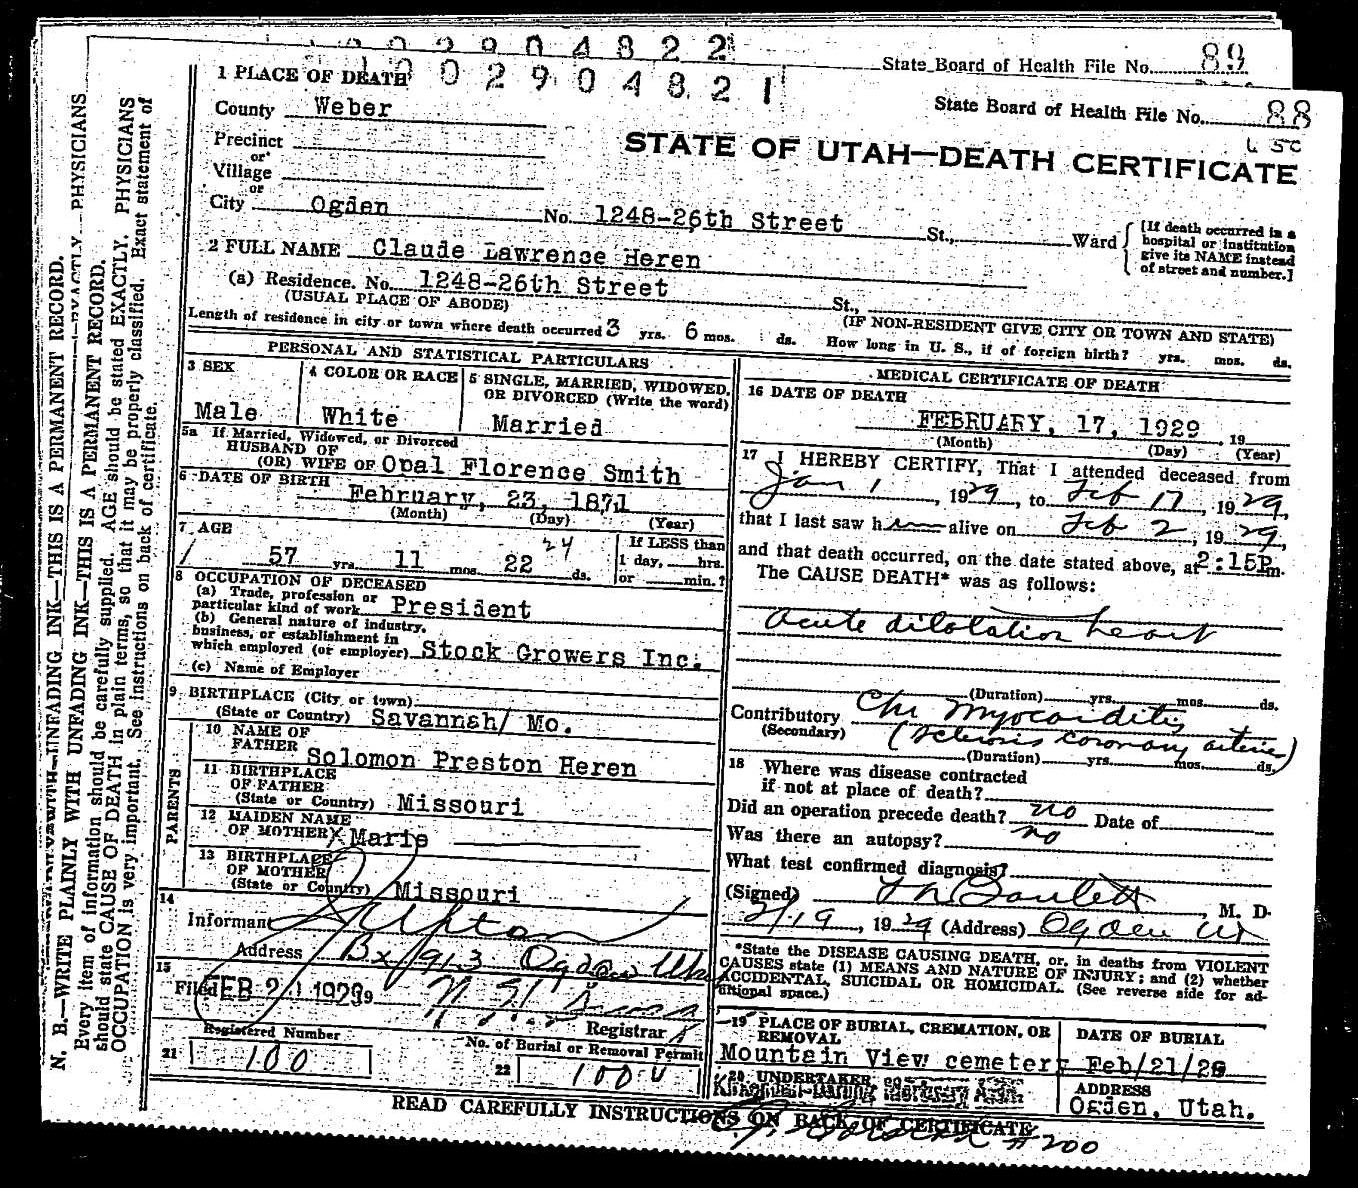 2904822
State Board of Health File No. 89
1 PLACE OF DEATH 002904821
State Board of Health File No. 88
County Weber
Precinct
or
Village
or
STATE OF UTAH—DEATH CERTIFICATE
City Ogden No. 1248-26th Street St., Ward
[If death occurred in a
hospital or institution
give its NAME instead
of street and number.]
2 FULL NAME Claude Lawrence Heren
(a) Residence. No. 1248-26th Street St.,
(USUAL PLACE OF ABODE) (IF NON-RESIDENT GIVE CITY OR TOWN AND STATE)
Length of residence in city or town where death occurred 3 yrs. 6 mos. ds. How long in U. S., if of foreign birth? yrs. mos. ds.
PERSONAL AND STATISTICAL PARTICULARS
3 SEX
Male
4 COLOR OR RACE
White
5 SINGLE, MARRIED, WIDOWED,
OR DIVORCED (Write the word)
Married
5a If Married, Widowed, or Divorced
HUSBAND OF
(OR) WIFE OF Opal Florence Smith
6 DATE OF BIRTH
February, 23, 1871
(Month) (Day) (Year)
7 AGE
57 yrs. 11 mos. 22 24 ds.
If LESS than
1 day, hrs.
or min.?
8 OCCUPATION OF DECEASED
(a) Trade, profession or
particular kind of work President
(b) General nature of industry,
business, or establishment in
which employed (or employer) Stock Growers Inc.
(c) Name of Employer
9 BIRTHPLACE (City or town)
(State or Country) Savannah/ Mo.
PARENTS
10 NAME OF
FATHER Solomon Preston Heren
11 BIRTHPLACE
OF FATHER
(State or Country) Missouri
12 MAIDEN NAME
OF MOTHER X Marie
13 BIRTHPLACE
OF MOTHER
(State or Country) Missouri
14
Informant Upton
Address Bx 913 Ogden Utah
15
Filed FEB 21 1929
Registrar
Registered Number
21 100
No. of Burial or Removal Permit
22 100
MEDICAL CERTIFICATE OF DEATH
16 DATE OF DEATH
FEBRUARY, 17, 1929, 19
(Month) (Day) (Year)
17 I HEREBY CERTIFY, That I attended deceased from
Jan 1, 1929, to Feb 17, 1929,
that I last saw him alive on Feb 2, 1929,
and that death occurred, on the date stated above, at 2:15P m.
The CAUSE DEATH* was as follows:
Acute dilotation heart
(Duration) yrs. mos. ds.
Contributory Chr Myocarditis
(Secondary) (Sclerosis coronary arteries)
(Duration) yrs. mos. ds.
18 Where was disease contracted
if not at place of death?
Did an operation precede death? no Date of
Was there an autopsy? no
What test confirmed diagnosis?
(Signed) M. D.
2/19, 1929 (Address) Ogden Ut
*State the DISEASE CAUSING DEATH, or, in deaths from VIOLENT
CAUSES state (1) MEANS AND NATURE OF INJURY; and (2) whether
ACCIDENTAL, SUICIDAL OR HOMICIDAL. (See reverse side for ad-
ditional space.)
19 PLACE OF BURIAL, CREMATION, OR
REMOVAL
Mountain View cemetery
DATE OF BURIAL
Feb/21/29
20 UNDERTAKER
ADDRESS
Ogden, Utah.
#200
READ CAREFULLY INSTRUCTIONS ON BACK OF CERTIFICATE
N. B.—WRITE PLAINLY WITH UNFADING INK—THIS IS A PERMANENT RECORD.
Every item of information should be carefully supplied. AGE should be stated EXACTLY. PHYSICIANS
should state CAUSE OF DEATH in plain terms, so that it may be properly classified. Exact statement of
OCCUPATION is very important. See instructions on back of certificate.